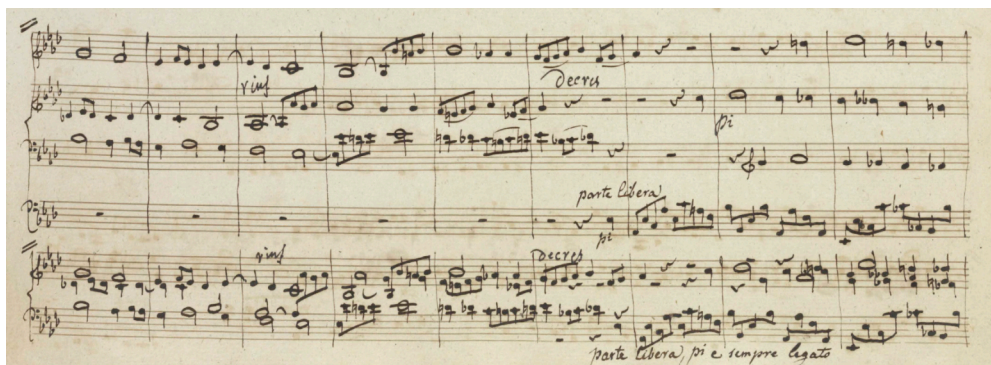 rinf
decres
pi
parte libera
pi
rinf
decres
parte libera, pi e sempre legato